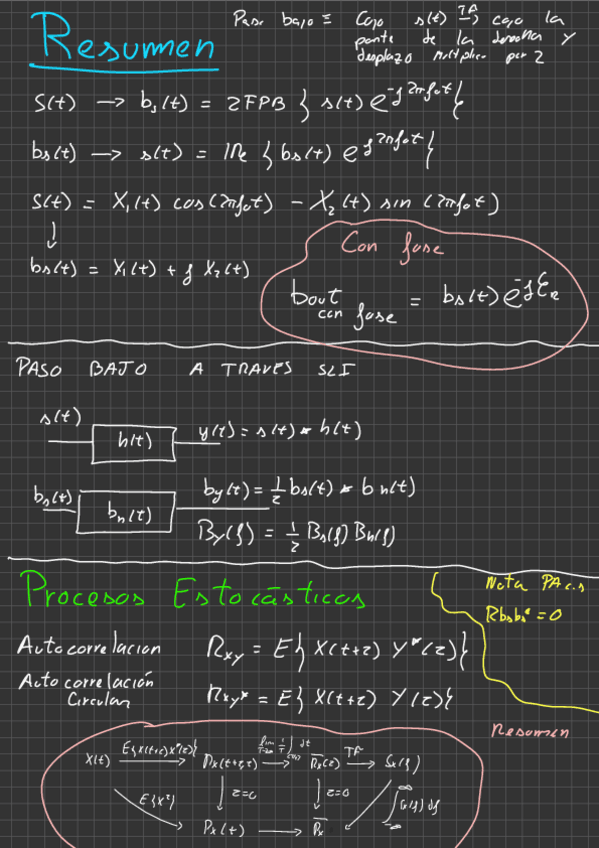 Resumen
Paso bajo ≡ Cojo s(t) TF→ cojo la
parte de la derecha y
desplazo multiplico por 2
S(t) → bs(t) = 2FPB { s(t) e^-j2πfot }
bs(t) → s(t) = Re { bs(t) e^j2πfot }
S(t) = X1(t) cos(2πfot) - X2(t) sin (2πfot)
↓
bs(t) = X1(t) + j X2(t)
Con fase
bout con fase = bs(t) e^-j
PASO BAJO A TRAVES SLI
s(t)
h(t)
y(t) = s(t) * h(t)
bs(t)
bh(t)
by(t) = 1/2 bs(t) * bh(t)
By(f) = 1/2 Bs(f) Bh(f)
Procesos Estocásticos
Nota PA
Rbsbs* = 0
Autocorrelacion Rxy = E{ X(t+z) Y*(z) }
Autocorrelación
Circular
Rxy* = E{ X(t+z) Y(z) }
Resumen
X(t) E{X(t+z)X*(z)} → Rx(t+z,z) → Rx(z) TF → Sx(f)
E{X²} ↓ z=0 ↓ z=0 ∫
Px(t) → Px